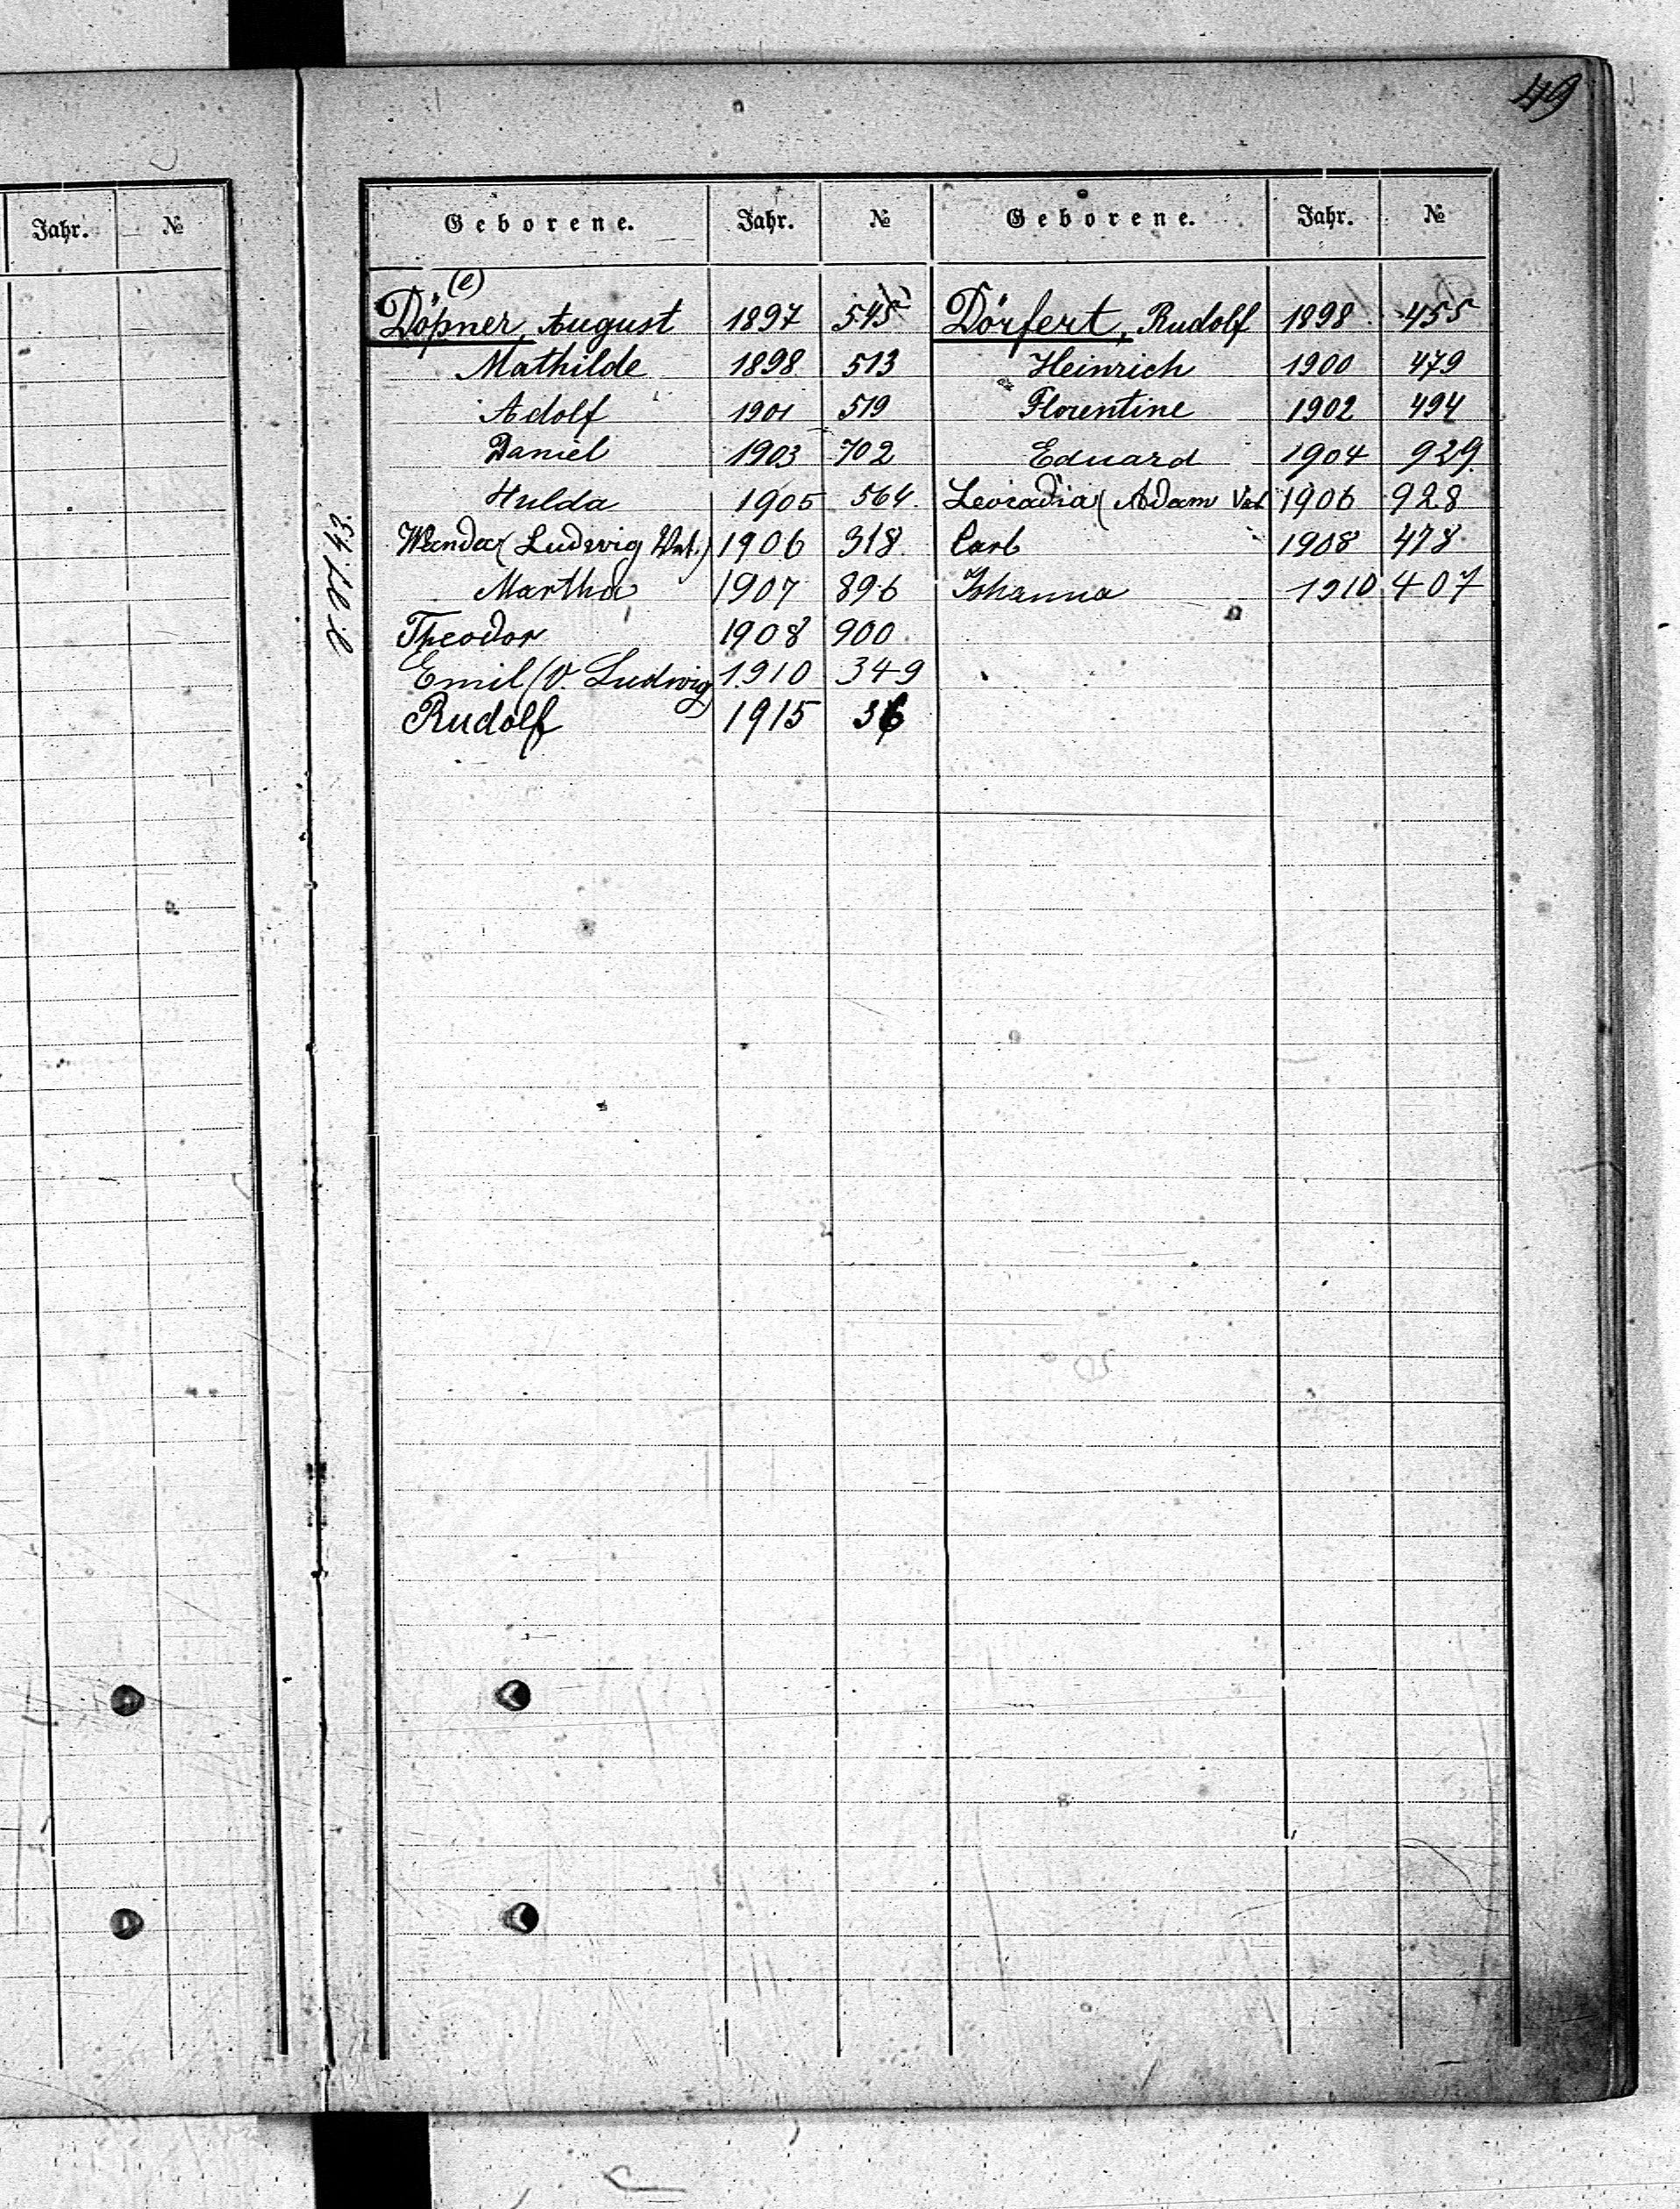 49
Jahr. №
Geborene. Jahr. № Geborene. Jahr. №
(e)
Döpner, August 1897 545 Dörfert, Rudolf 1898 455
Mathilde 1898 513 Heinrich 1900 479
Adolf 1901 519 Florentine 1902 494
Daniel 1903 702 Eduard 1904 929
Hulda 1905 564. Leocadia (Adam Vat 1906 928
Wanda (Ludwig Vat.) 1906 318. Carl 1908 478
Martha 1907 896 Johanna 1910 407
Theodor 1908 900
Emil (V. Ludwig) 1910 349
Rudolf 1915 36
43.